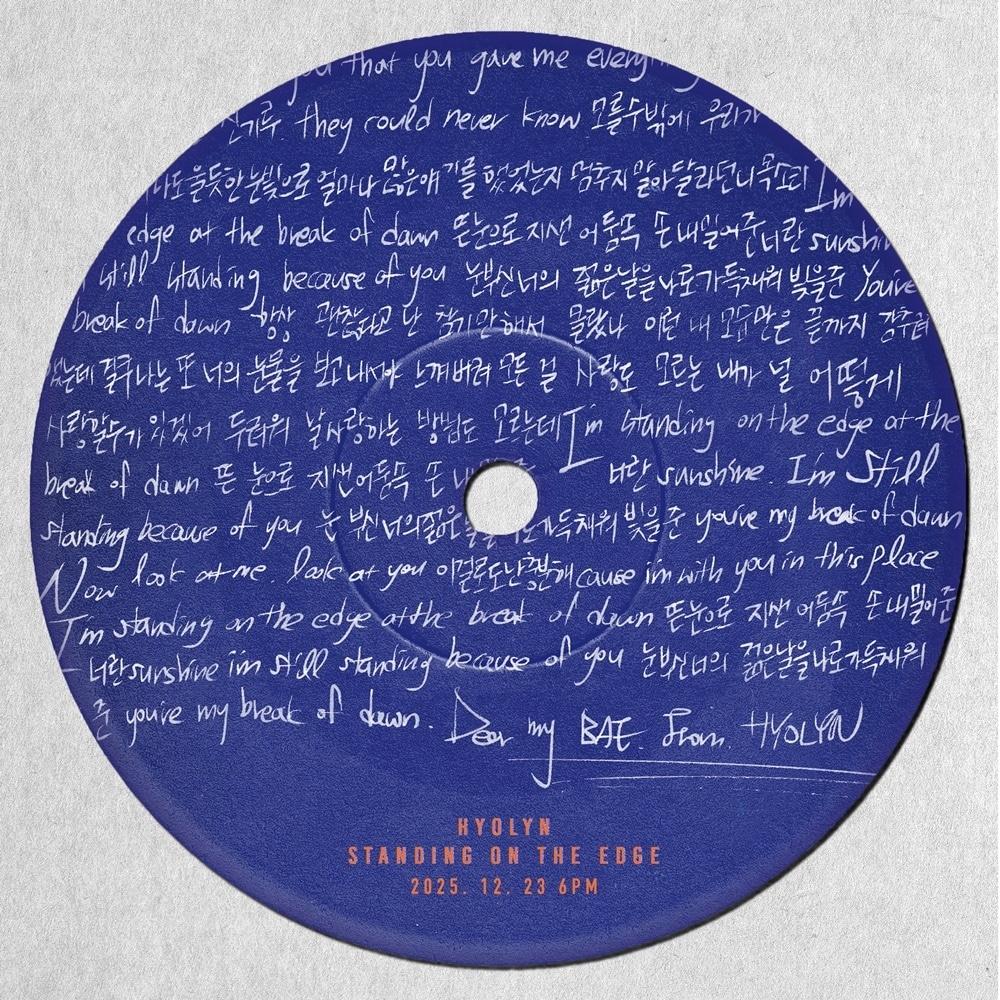 you that you gave me
신기루. they could never know 모를수밖에 우리가
나도 울듯한 눈빛으로 얼마나 많은얘기를 했었는지 멈추지 말아달라던 니 목소리 I'm
edge at the break of dawn 뜬눈으로 지샌 어둠속 손 내밀어준 너란 sunshin
still standing because of you 눈부신 너의 젊은날을 나로 가득채워 빛을 준 You're
break of dawn 항상 괜찮다고 난 참기만 해서 몰랐나 이런 내 모습 끝까지 감추려
했는데 결국 나는 또 너의 눈물을 보고 내서야 느껴버려 모든 걸 사랑도 모르는 내가 널 어떻게
사랑할수가 있겠어 두려워 날 사랑하는 방법도 모르는데 I'm standing on the edge at the
break of dawn 뜬 눈으로 지샌 어둠속 손 너란 sunshine. I'm Still
standing because of you 눈 부신 너의 젊은 가득채워 빛을 준 you're my break of dawn
Now look at me. look at you 이걸로도 난 충분해 cause i'm with you in this place
I'm standing on the edge at the break of dawn 뜬눈으로 지샌 어둠속 손 내밀어준
너란 sunshine i'm still standing because of you 눈부신 너의 젊은날을 나로 가득채워
준 you're my break of dawn. Dear my BAE. From. HYOLYN
HYOLYN
STANDING ON THE EDGE
2025. 12. 23 6PM